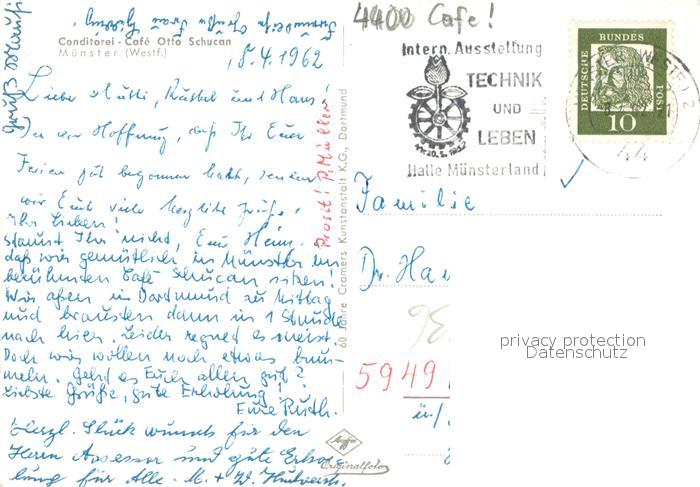 4400 Cafe!
Conditorei - Café Otto Schucan
Münster (Westf.)
8.4.1962
Liebe Mutti, und Hans!
In der Hoffnung, daß Ihr Eure
Ferien gut begonnen habt, senden
wir Euch viele herzliche Grüße,
Ihr Lieben!
staunt Ihr nicht, Eure Heim.
daß wir gemütlich in Münster im
berühmten Café Schucan sitzen!
Wir aßen in Dortmund zu Mittag
und brausten dann in 1 Stunde
nach hier. Leider regnet es meist.
Doch wir wollen noch etwas bum-
meln. Geht es Euch allen gut?
Liebste Grüße, gute Erholung!
Eure Ruth.
Herzl. Glückwunsch für den
Herrn Assessor und gute Erho-
lung für Alle. M. + W.
Gruß
Prosit! P. Müller
60 Jahre Cramers Kunstanstalt K.G., Dortmund
Agfa
Originalfoto
Intern. Ausstellung
TECHNIK
UND
LEBEN
Halle Münsterland
DEUTSCHE
BUNDES
POST
10
44
Familie
Dr. Ha
5949
privacy protection
Datenschutz